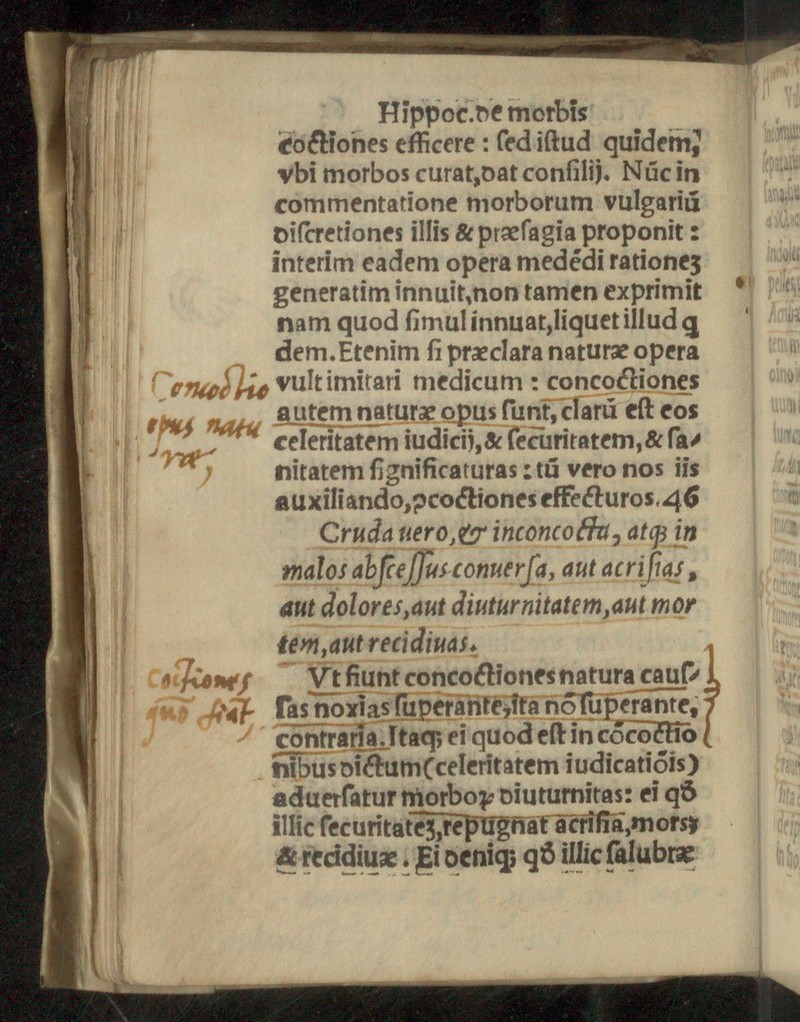 Hippoc.de morbis
coctiones efficere : sed istud quidem,
vbi morbos curat,dat consilij. Nūc in
commentatione morborum vulgariū
discretiones illis & præsagia proponit :
interim eadem opera medēdi rationeʒ
generatim innuit,non tamen exprimit
nam quod simul innuat,liquet illud q
dem.Etenim si præclara naturæ opera
vult imitari medicum : concoctiones
autem naturæ opus sunt, clarū est eos
celeritatem iudicij,& securitatem,& sa⸗
nitatem significaturas : tū vero nos iis
auxiliando,ↄcoctiones effecturos.46
Cruda uero,& inconcocta, atqꝫ in
malos abscessus conuersa, aut acrisias,
aut dolores,aut diuturnitatem,aut mor
tem,aut recidiuas.
Vt fiunt concoctiones natura caus⸗
sas noxias superante,ita nō superante,
contraria.Itaqꝫ ei quod est in cōcoctio
nibus dictum(celeritatem iudicatiōis)
aduersatur morboꝝ diuturnitas: ei qđ
illic securitateʒ,repugnat acrisia,morsꝫ
& recidiuæ. Ei deniqꝫ qđ illic salubræ
Concoctio
opus natu
ræ,
Coctiones
quō fiāt